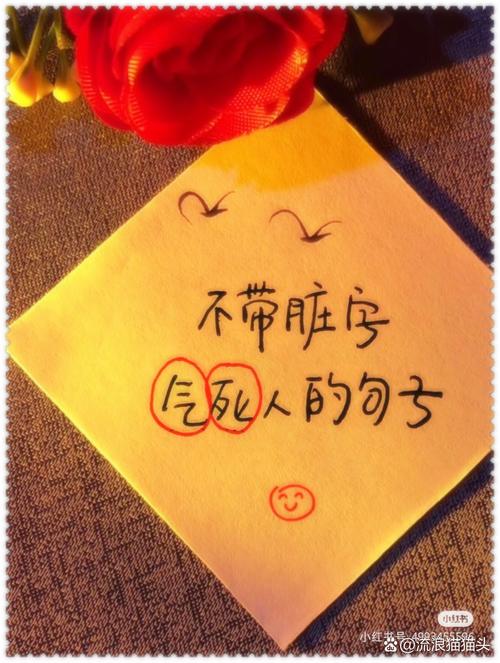 不带脏字
气死人的句子
小红书
小红书号 4993455596
@流浪猫猫头